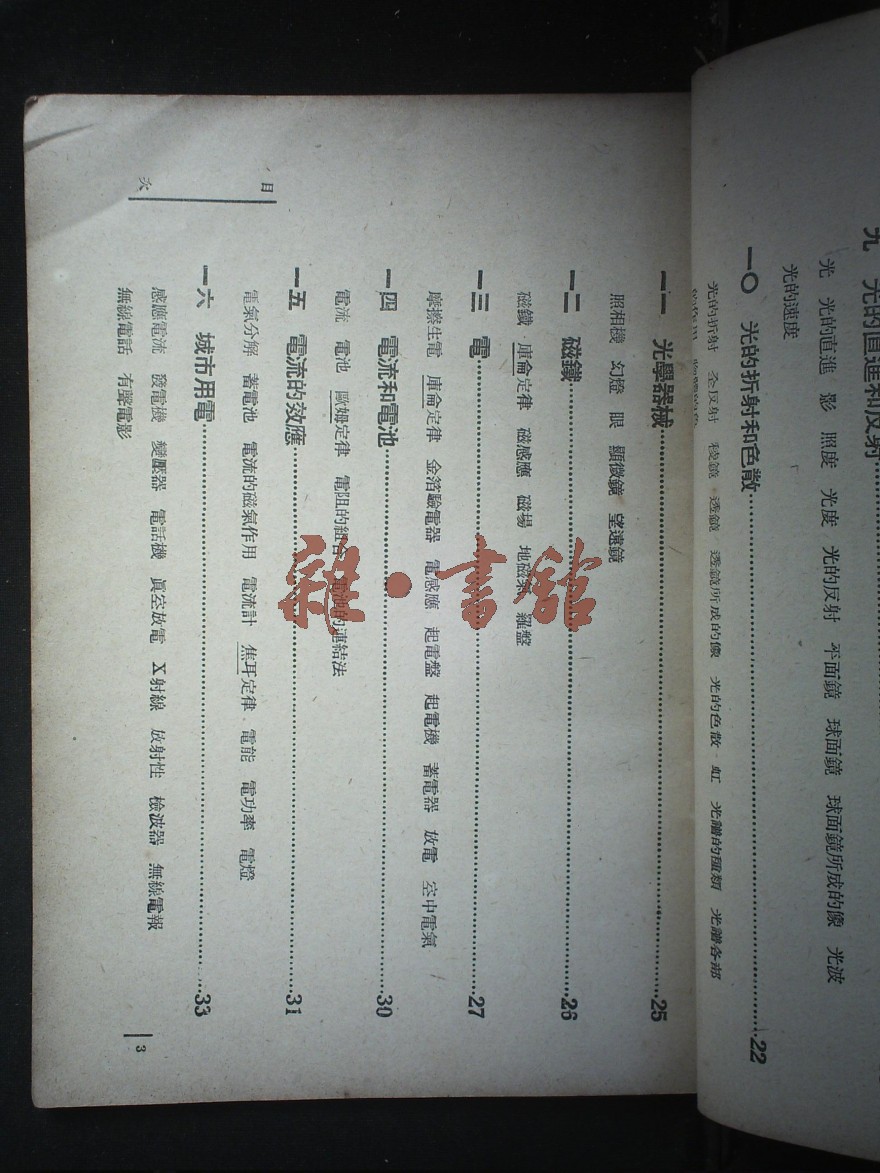 九 光的直進和反射
光 光的直進 影 照度 光度 光的反射 平面鏡 球面鏡 球面鏡所成的像 光波
光的速度
一〇 光的折射和色散 22
光的折射 全反射 稜鏡 透鏡 透鏡所成的像 光的色散 虹 光譜的種類 光譜各部
一一 光學器械 25
照相機 幻燈 眼 顯微鏡 望遠鏡
一二 磁鐵 26
磁鐵 庫侖定律 磁感應 磁場 地磁氣 羅盤
一三 電 27
摩擦生電 庫侖定律 金箔驗電器 電感應 起電盤 起電機 蓄電器 放電 空中電氣
一四 電流和電池 30
電流 電池 歐姆定律 電阻的組合 電池的連結法
一五 電流的效應 31
電氣分解 蓄電池 電流的磁氣作用 電流計 焦耳定律 電能 電功率 電燈
一六 城市用電 33
感應電流 發電機 變壓器 電話機 眞空放電 X射線 放射性 檢波器 無線電報
無線電話 有聲電影
目
次
3